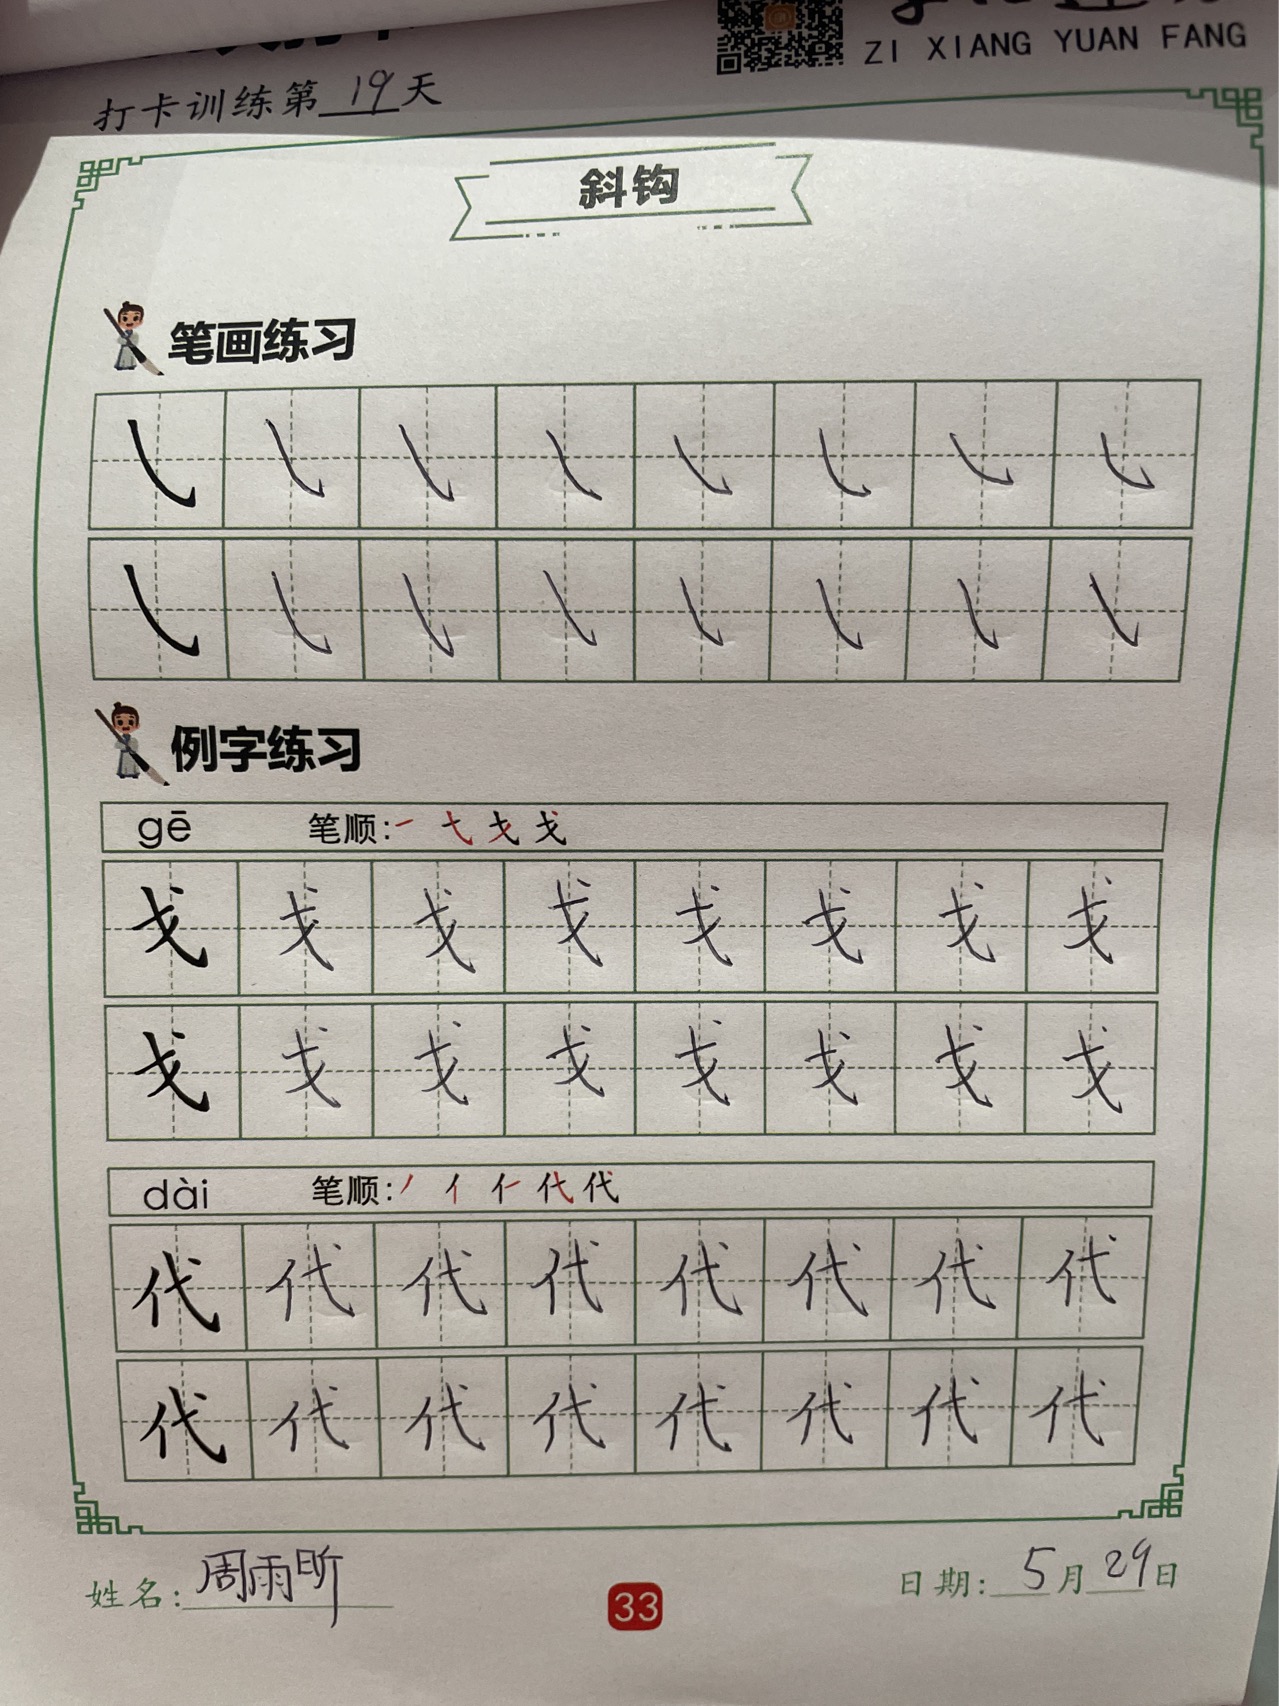 ZI XIANG YUAN FANG
打卡训练第19天
斜钩
笔画练习
㇂ ㇂ ㇂ ㇂ ㇂ ㇂ ㇂ ㇂
㇂ ㇂ ㇂ ㇂ ㇂ ㇂ ㇂ ㇂
例字练习
gē 笔顺:一 弋 戈 戈
戈 戈 戈 戈 戈 戈 戈 戈
戈 戈 戈 戈 戈 戈 戈 戈
dài 笔顺:丿 亻 仁 代 代
代 代 代 代 代 代 代 代
代 代 代 代 代 代 代 代
姓名:周雨昕
33
日期:5月29日